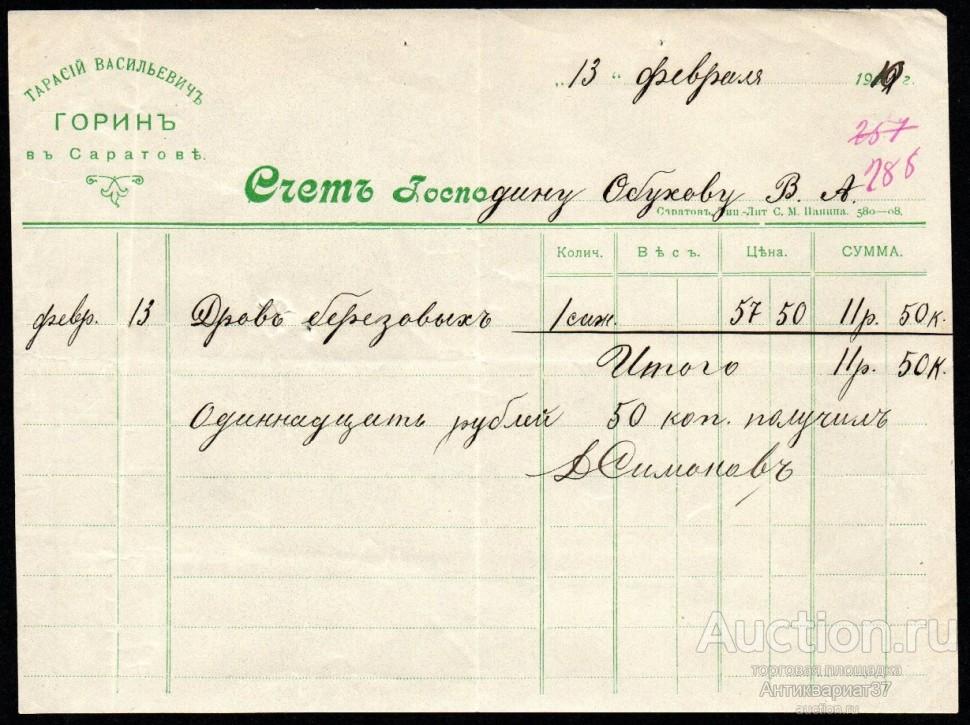 ТАРАСІЙ ВАСИЛЬЕВИЧЪ
ГОРИНЪ
въ Саратовѣ.
„13“ февраля 1910 г.
257
286
Счетъ Господину Обухову В. А.
Саратовъ, Тип.-Лит С. М. Панина. 580—08.
Колич. Вѣсъ. Цѣна. СУММА.
февр. 13 Дровъ березовыхъ 1 саж. 57 50 11р. 50к.
Итого 11р. 50к.
Одиннадцать рублей 50 коп. получилъ
Симоновъ
Auction.ru
торговая площадка
Антиквариат37
auction.ru